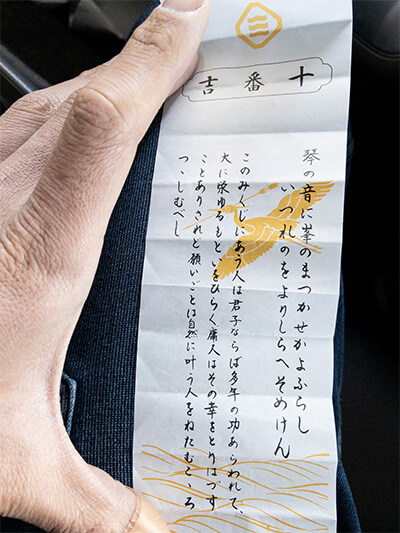 十番吉
琴の音に峯のまつかせかよふらし
いつれのをよりしらへそめけん
このみくじにあう人は君子ならば多年の功あらわれて、
大に栄ゆるもといをひらく庸人はその幸をとりはづす
ことありされど願いごとは自然に叶う人をねたむこゝろ
つゝしむべし